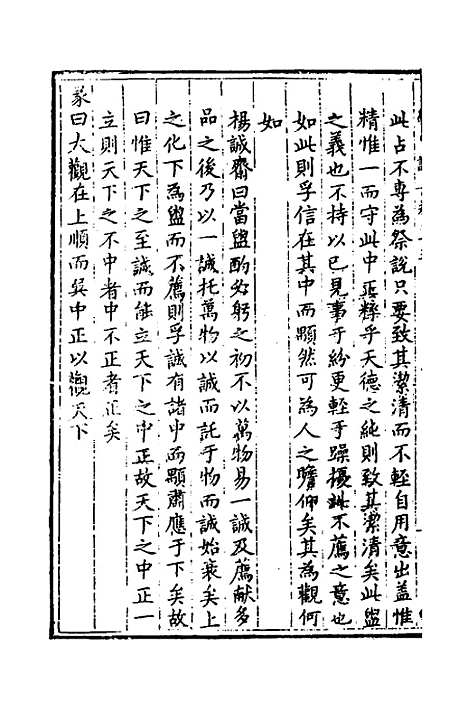 此占不專為祭說只要致其潔清而不輕自用意出蓋惟
精惟一而守此中正粹乎天德之純則致其潔清矣此盥
之義也不持以己見事于紛更輕于躁擾此不薦之意也
如此則孚信在其中而顒然可為人之瞻仰矣其為觀何
如
楊誠齋曰當盥酌必躬之初不以萬物易一誠及薦獻多
品之後乃以一誠托萬物以誠而託于物而誠始衰矣上
之化下為盥而不薦則孚誠有諸中而顒肅應于下矣故
曰惟天下之至誠而能立天下之中正故天下之中正一
立則天下之不中者中不正者正矣
彖曰大觀在上順而巽中正以觀天下